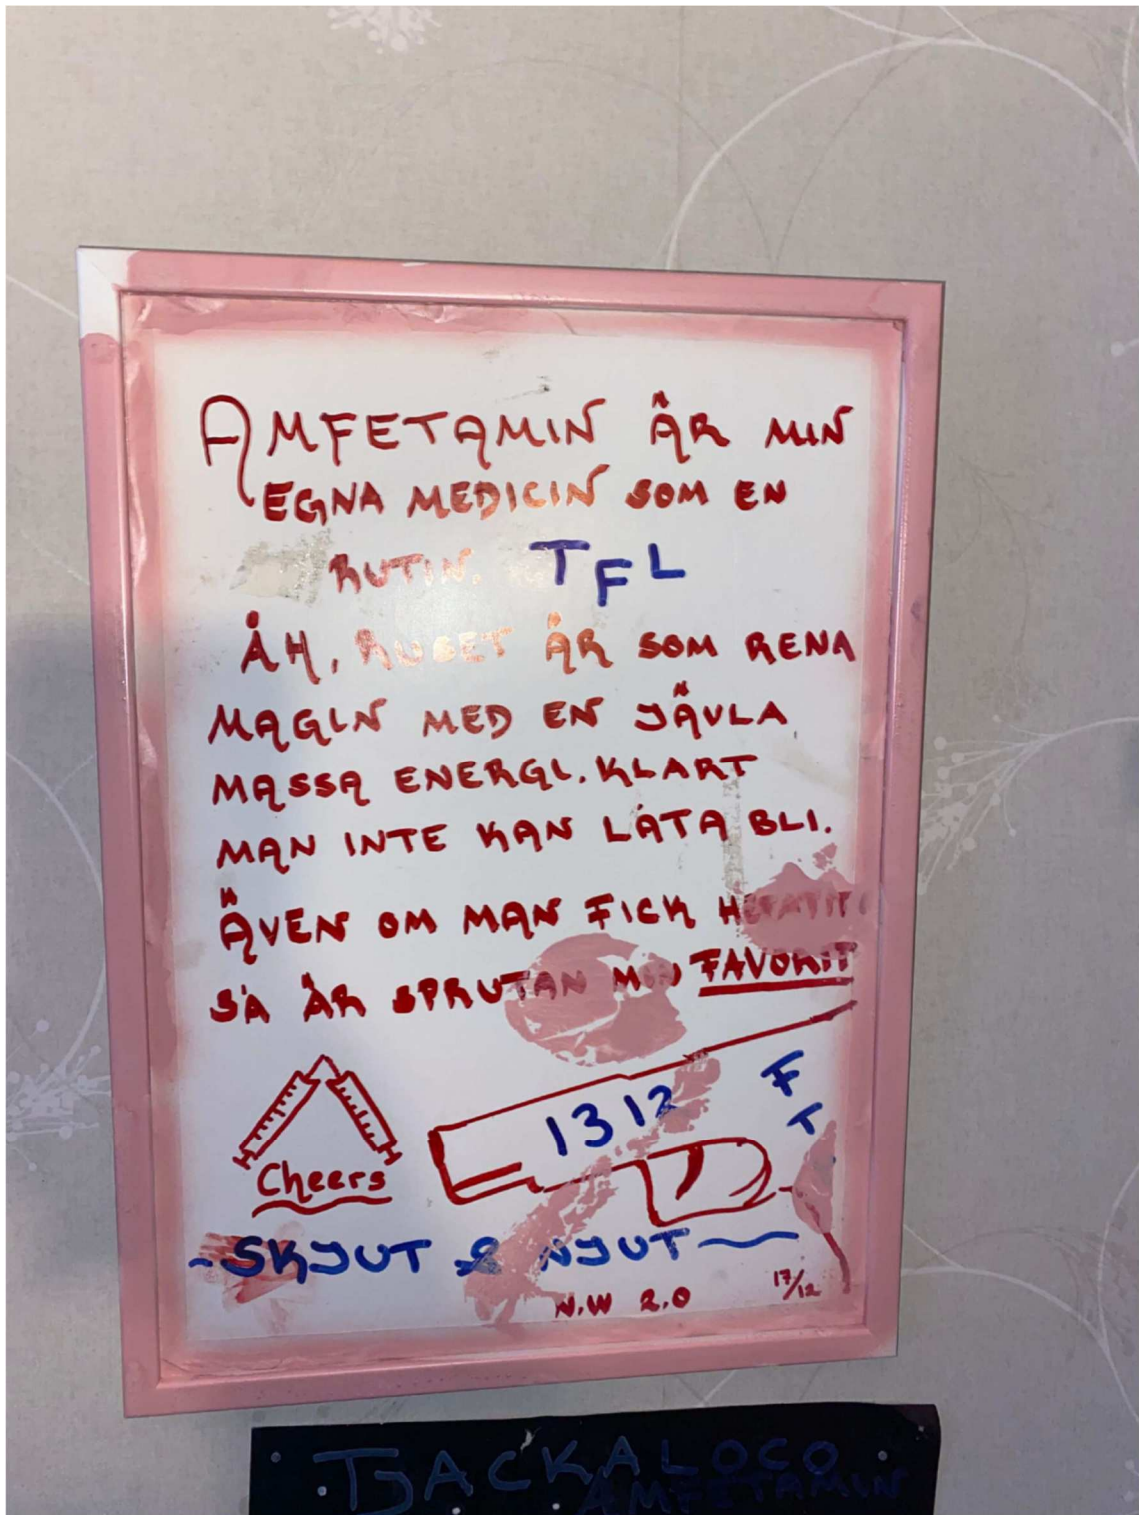 AMFETAMIN ÄR MIN
EGNA MEDICIN SOM EN
RUTIN. TFL
ÅH, RUSET ÄR SOM RENA
MAGIN MED EN JÄVLA
MASSA ENERGI. KLART
MAN INTE KAN LÅTA BLI.
ÄVEN OM MAN FICK HEPATIT
SÅ ÄR SPRUTAN MIN FAVORIT
1312
F
T
Cheers
~SKJUT & NJUT~
N.W 2.0 17/12
TJACKALOCO
AMFETAMIN